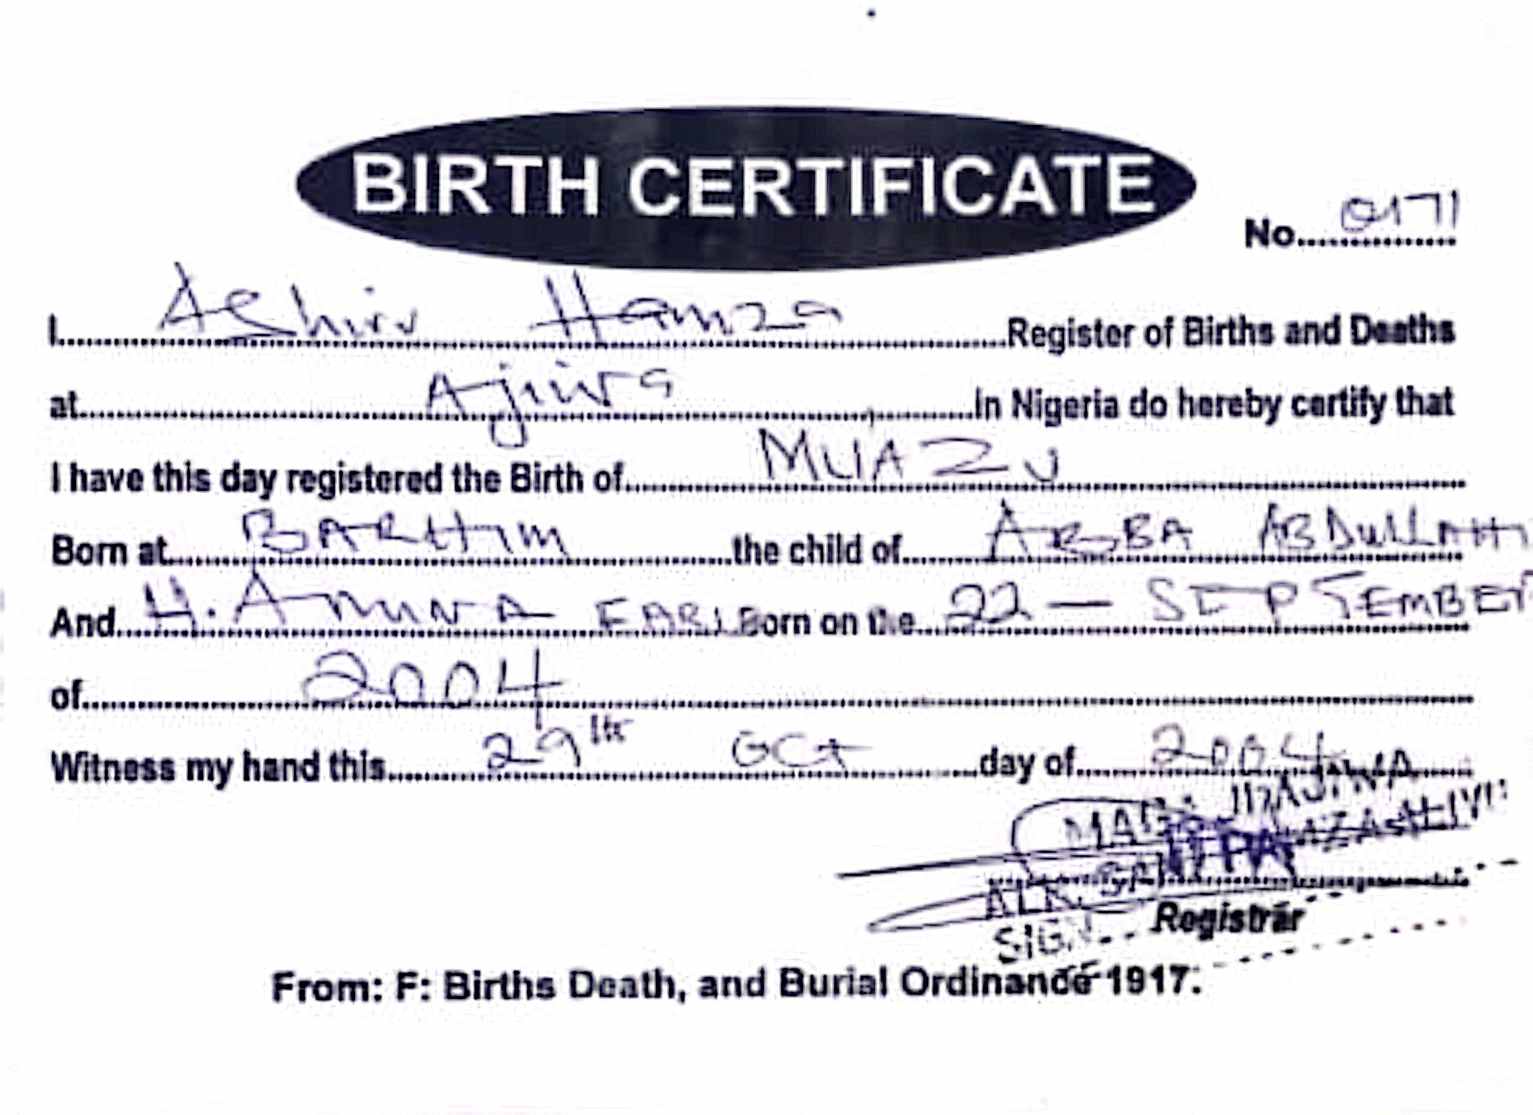 BIRTH CERTIFICATE
No. 0171
I Ashiru Hamza Register of Births and Deaths
at Ajiwa In Nigeria do hereby certify that
I have this day registered the Birth of MUAZU
Born at BARHIM the child of ABBA ABDULLAHI
And H. AMINA Born on the 22 - SEPTEMBER
of 2004
Witness my hand this 29th Oct day of 2004
SIGN
Registrar
From: F: Births Death, and Burial Ordinance 1917.